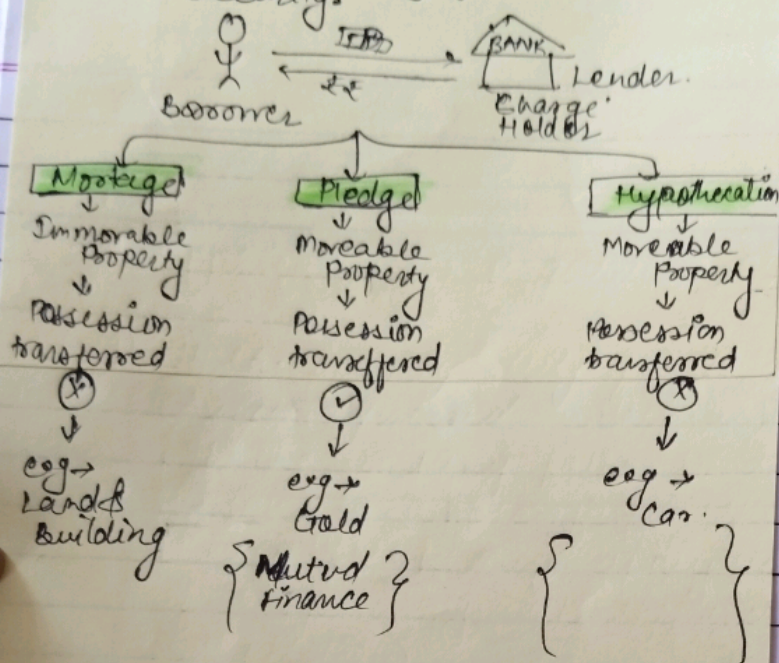 BANK
₹₹
Lender.
Borrower
Charge
Holder
Mortage
Immovable
Property
Possession
transferred
eg→
Land &
Building
Pledge
Moveable
Property
Possession
transffered
eg→
Gold
{ Mutud
Finance }
Hypothecation
Moveable
Property
Possession
transferred
eg→
Car.